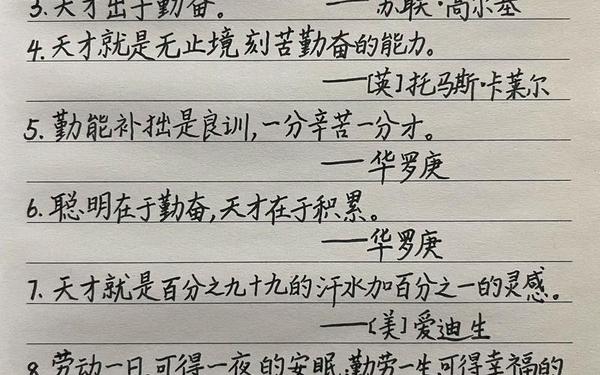 3.天才出于勤奋。
——苏联·高尔基
4.天才就是无止境刻苦勤奋的能力。
——[英]托马斯·卡莱尔
5.勤能补拙是良训,一分辛苦一分才。
——华罗庚
6.聪明在于勤奋,天才在于积累。
——华罗庚
7.天才就是百分之九十九的汗水加百分之一的灵感。
——(美)爱迪生
8.劳动一日,可得一夜的安眠,勤劳一生,可得幸福的